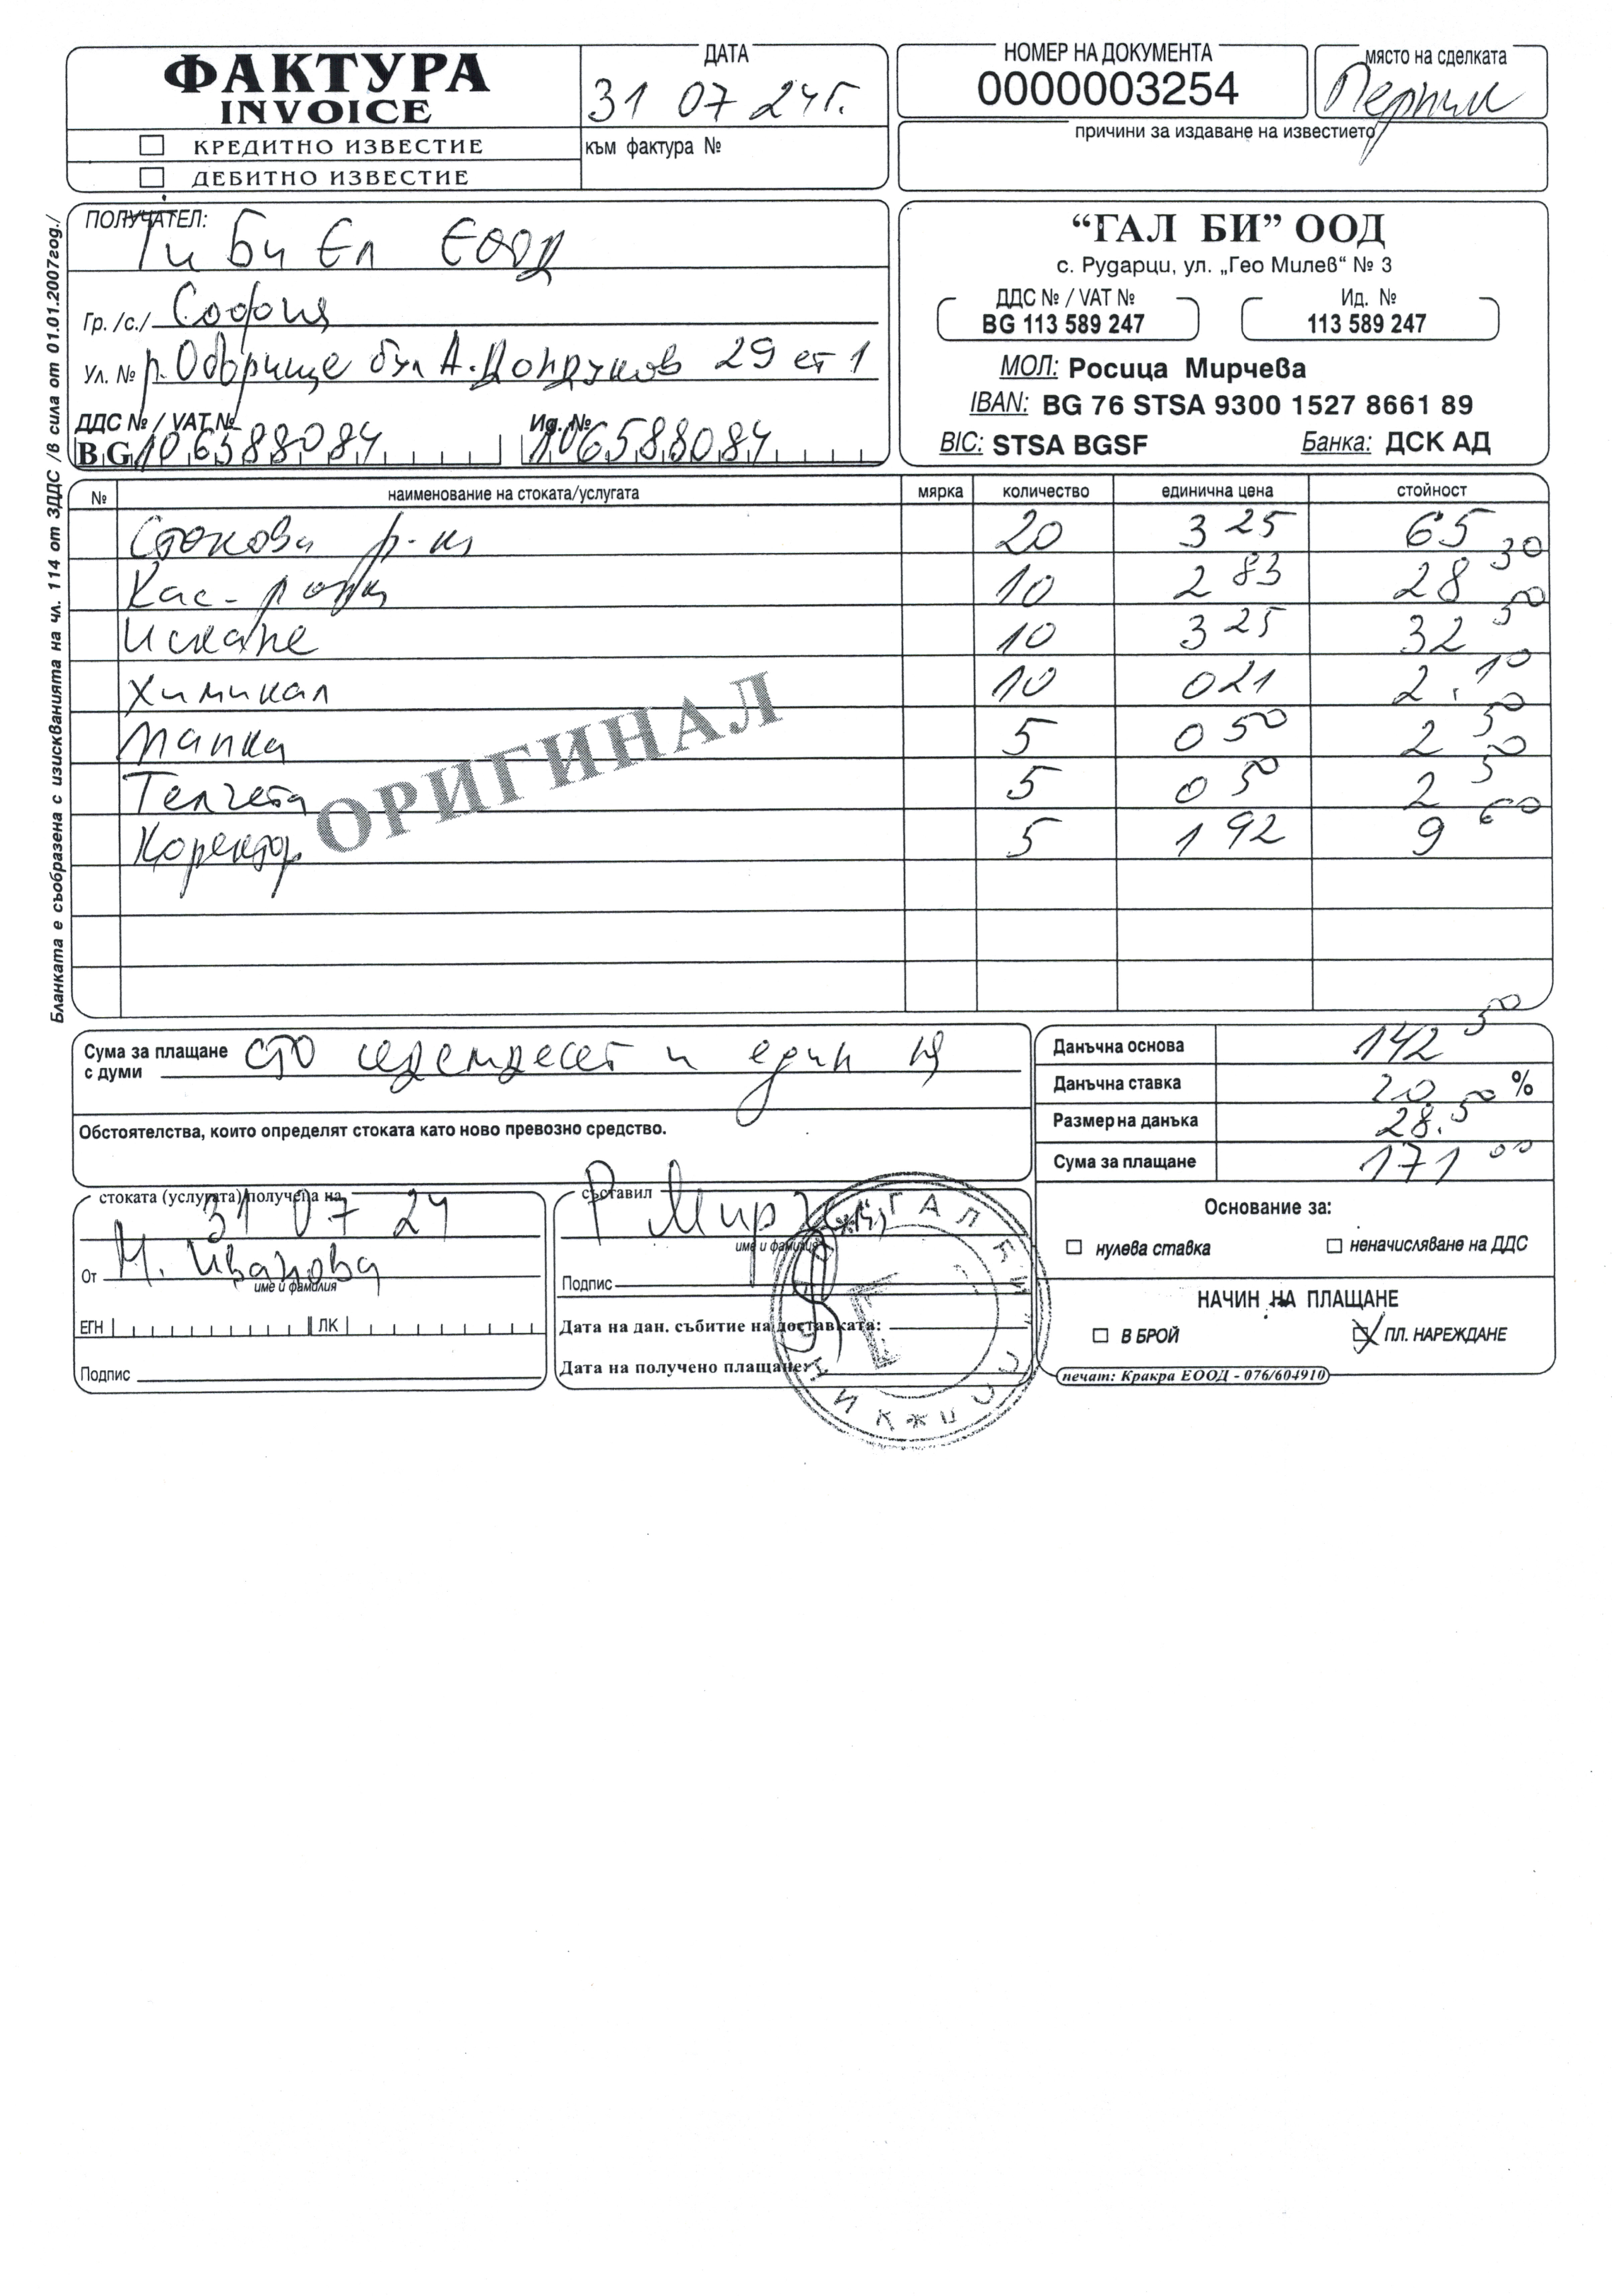 ФАКТУРА
INVOICE
КРЕДИТНО ИЗВЕСТИЕ
ДЕБИТНО ИЗВЕСТИЕ
ДАТА
31 07 24г.
към фактура №
НОМЕР НА ДОКУМЕНТА
0000003254
място на сделката
Перник
причини за издаване на известието
ПОЛУЧАТЕЛ:
Ти Би Ел ЕООД
Гр. /с./ София
Ул. № р. Оборище бул А. Дондуков 29 ет 1
ДДС № / VAT № Ид. №
BG 106588084 106588084
“ГАЛ БИ” ООД
с. Рударци, ул. „Гео Милев“ № 3
ДДС № / VAT № Ид. №
BG 113 589 247 113 589 247
МОЛ: Росица Мирчева
IBAN: BG 76 STSA 9300 1527 8661 89
BIC: STSA BGSF Банка: ДСК АД
Бланката е съобразена с изискванията на чл. 114 от ЗДДС /в сила от 01.01.2007год./
№ наименование на стоката/услугата мярка количество единична цена стойност
Стокова р-ка 20 3 25 65
Кас- ролки 10 2 83 28 30
Искане 10 3 25 32 50
Химикал 10 0 21 2. 10
Папка 5 0 50 2 50
Телчета 5 0 50 2 50
Коректор 5 1 92 9 60
ОРИГИНАЛ
Сума за плащане сто седемдесет и един лв
с думи
Обстоятелства, които определят стоката като ново превозно средство.
Данъчна основа 142 50
Данъчна ставка 20 %
Размер на данъка 28. 50
Сума за плащане 171 00
стоката (услугата) получена на
31 07 24
От М. Иванова
име и фамилия
ЕГН ЛК
Подпис
съставил
Р Мирчева
име и фамилия
Подпис
Дата на дан. събитие на доставката:
Дата на получено плащане:
ГАЛ БИ
Основание за:
нулева ставка неначисляване на ДДС
НАЧИН НА ПЛАЩАНЕ
В БРОЙ ПЛ. НАРЕЖДАНЕ
печат: Кракра ЕООД - 076/604910